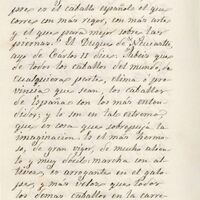 pre es el caballo español el que
corre con mas rigor, con mas arte
y el que para mejor sobre las
piernas. El Duque de Neucastle,
ayo de Carlos II dice: Sabed que
de todos los caballos del mundo, de
cualquiera parte, clima ó pro-
vincia que sean, los caballos
de España son los mas enten-
didos; y lo son en tal estremo
que es cosa que sobrepuja la
imaginacion. Es el mas hermo-
so, de gran vigor, de mucho alien-
to y muy docil; marcha con al-
tivez, es arrogante en el galo-
pe, y mas veloz que todos
los demas caballos en la carre-